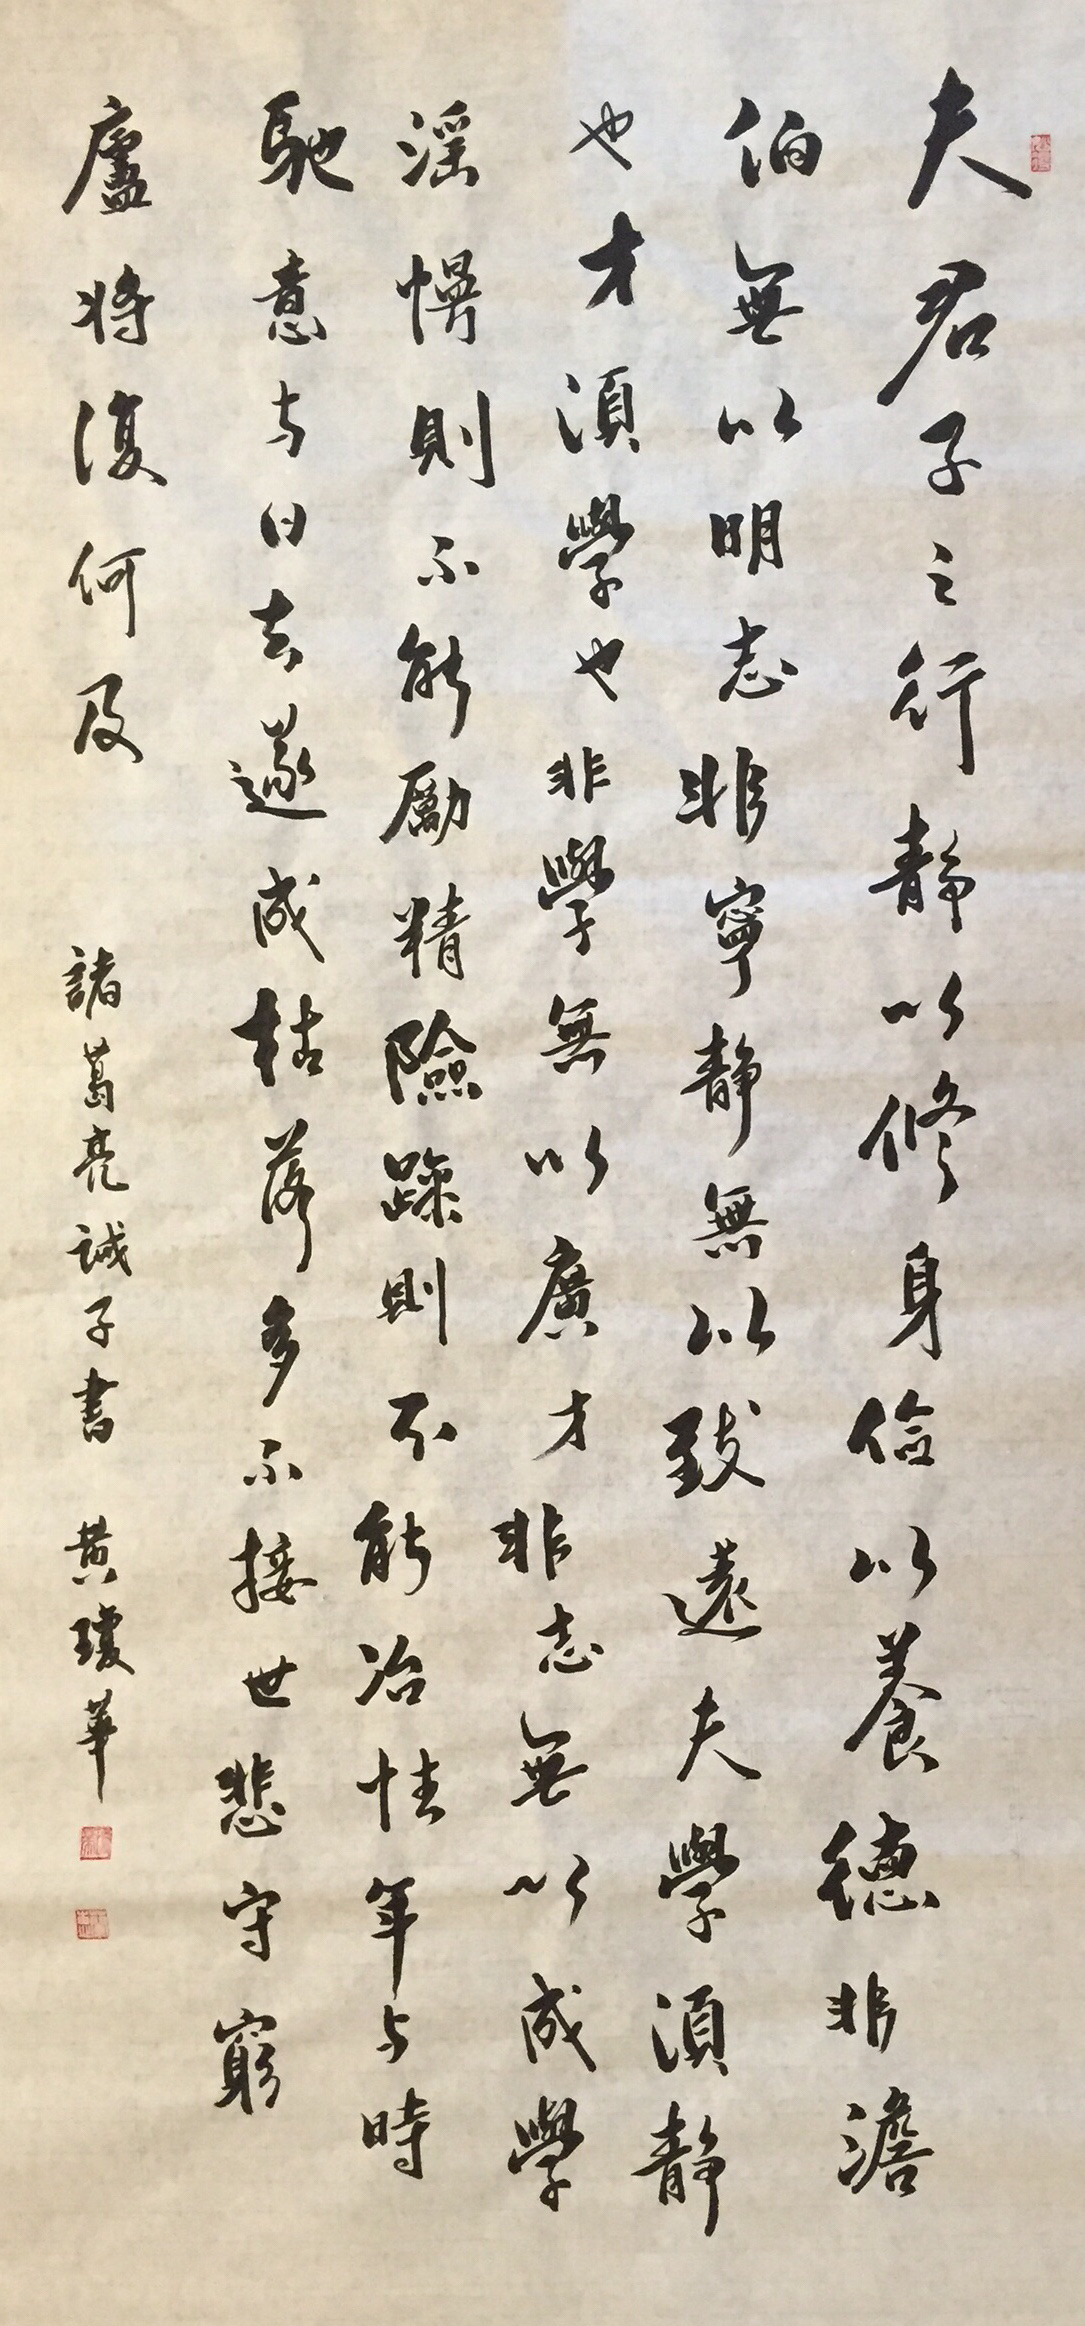 夫君子之行静以修身儉以養德非澹
伯無以明志非寧靜無以致遠夫學須靜
也才須學也非學無以廣才非志無以成學
淫慢則不能勵精險躁則不能冶性年与時
馳意与日去遂成枯落多不接世悲守窮
廬將復何及
諸葛亮誡子書 黄瓊華